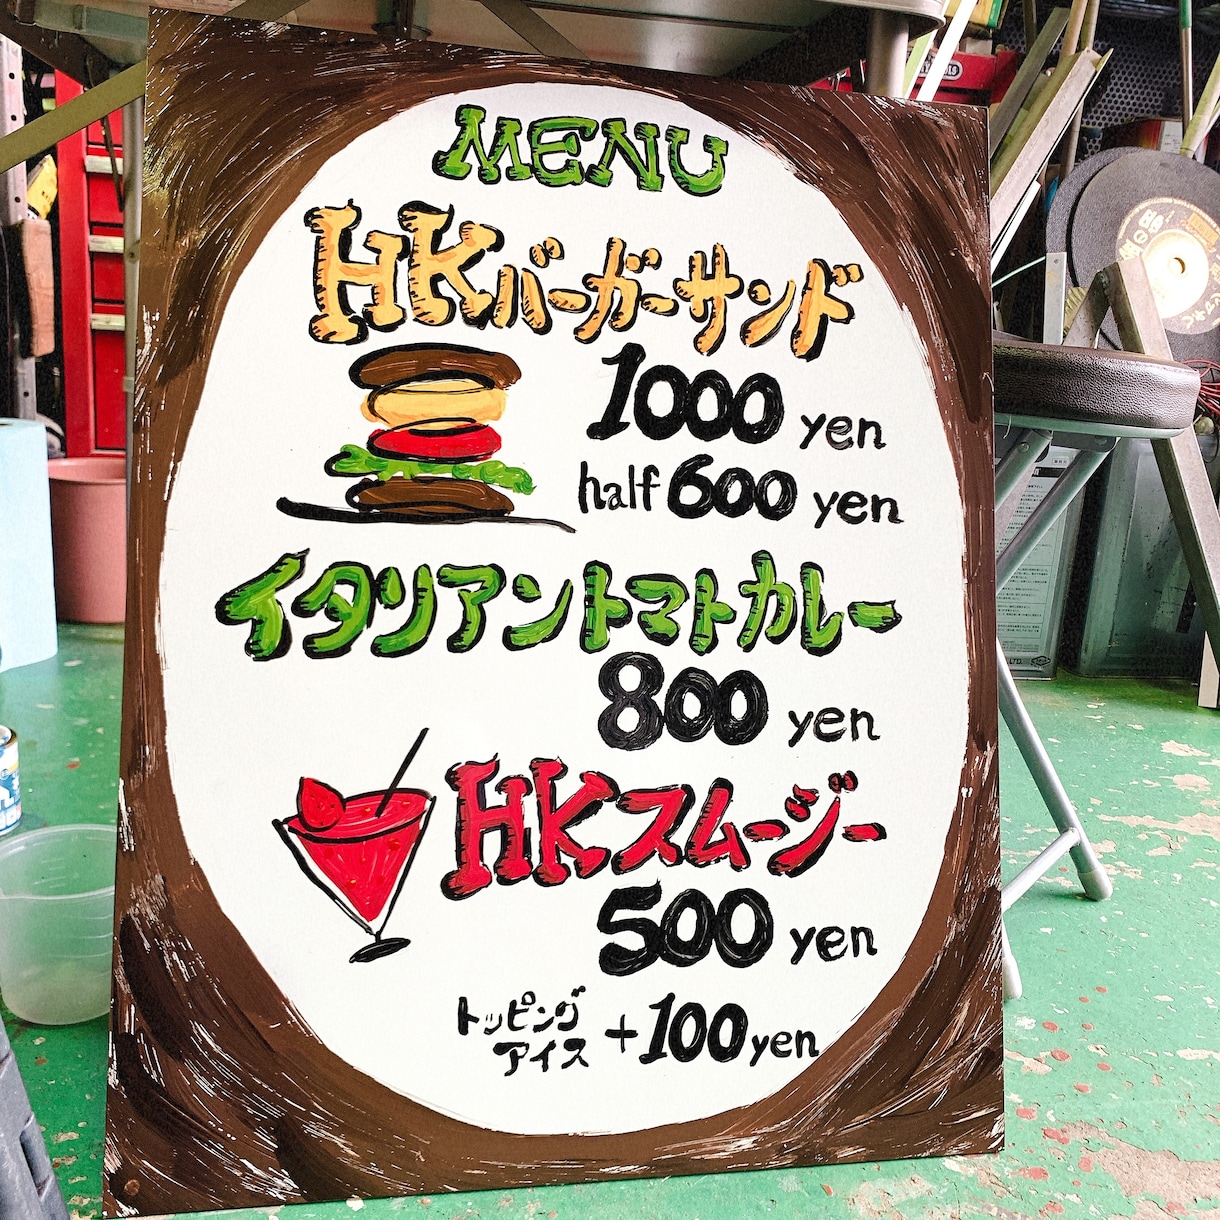 MENU
HKバーガーサンド
1000 yen
half 600 yen
イタリアントマトカレー
800 yen
HKスムージー
500 yen
トッピング
アイス +100yen